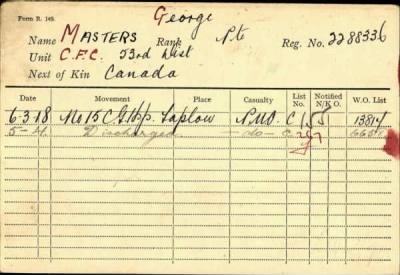 Form R. 149.
George
Name MASTERS Rank Pte Reg. No. 2288336
Unit C.F.C. 53rd Dist
Next of Kin Canada
Date Movement Place Casualty List No. Notified N/K O. W.O. List
6-3-18 No 15 C G Hp. Taplow C 155 13814
5-4. Discharged — do — C